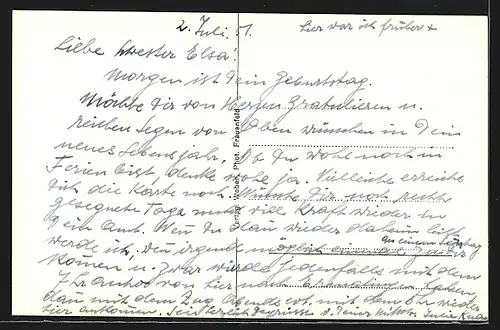 2. Juli. 51. hier war ich früher +
Liebe Schwester Elsa!
Morgen ist Dein Geburtstag.
Möchte Dir von Herzen gratulieren u.
reichen Segen von Oben wünschen in Dein
neues Lebensjahr. Ob Du wohl noch in
Ferien bist, denke wohl ja. Vielleicht erreicht
Dich die Karte noch. Wünsche Dir noch recht
gesegnete Tage und viel Kraft wieder in
Dein Amt. Wenn Du dann wieder daheim bist
an einem Sonntag
werde ich, wenn irgend möglich einmal zu Dir
kommen u. zwar würde jedenfalls mit dem
Autocar von hier
dann mit dem Zug Abends evt. mit dem Uhr wieder
hier ankommen. Sei herzlich
Verlag Weber, Phot. Frauenfeld